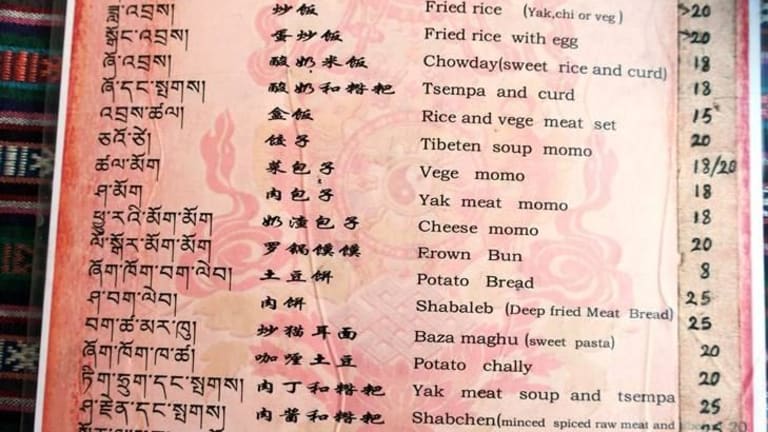 ཟླུ་འབྲས། 炒饭 Fried rice (Yak,chi or veg) 20
སྒོང་འབྲས། 蛋炒饭 Fried rice with egg 20
ཞོ་འབྲས། 酸奶米饭 Chowday(sweet rice and curd) 18
ཞོ་དང་སྤགས། 酸奶和糌粑 Tsempa and curd 18
འབྲས་ཚལ། 盒饭 Rice and vege meat set 15
饺子 Tibeten soup momo 20
ཚལ་མོག 菜包子 Vege momo 18/20
ཤ་མོག 肉包子 Yak meat momo 18
ཕྱུ་རའི་མོག་མོག 奶渣包子 Cheese momo 18
ལོ་སྐོར་མོག་མོག 罗锅馍馍 Erown Bun 20
ཞོག་ཁོག་བག་ལེབ། 土豆饼 Potato Bread 8
ཤ་བག་ལེབ། 肉饼 Shabaleb (Deep fried Meat Bread) 25
བག་ཚ་མར་ཁུ། 炒猫耳面 Baza maghu (sweet pasta) 25
ཞོག་ཁོག་ཁ་ཚ། 咖喱土豆 Potato chally 20
肉丁和糌粑 Yak meat soup and tsempa 20
肉酱和糌粑 Shabchen(minced spiced raw meat and 25